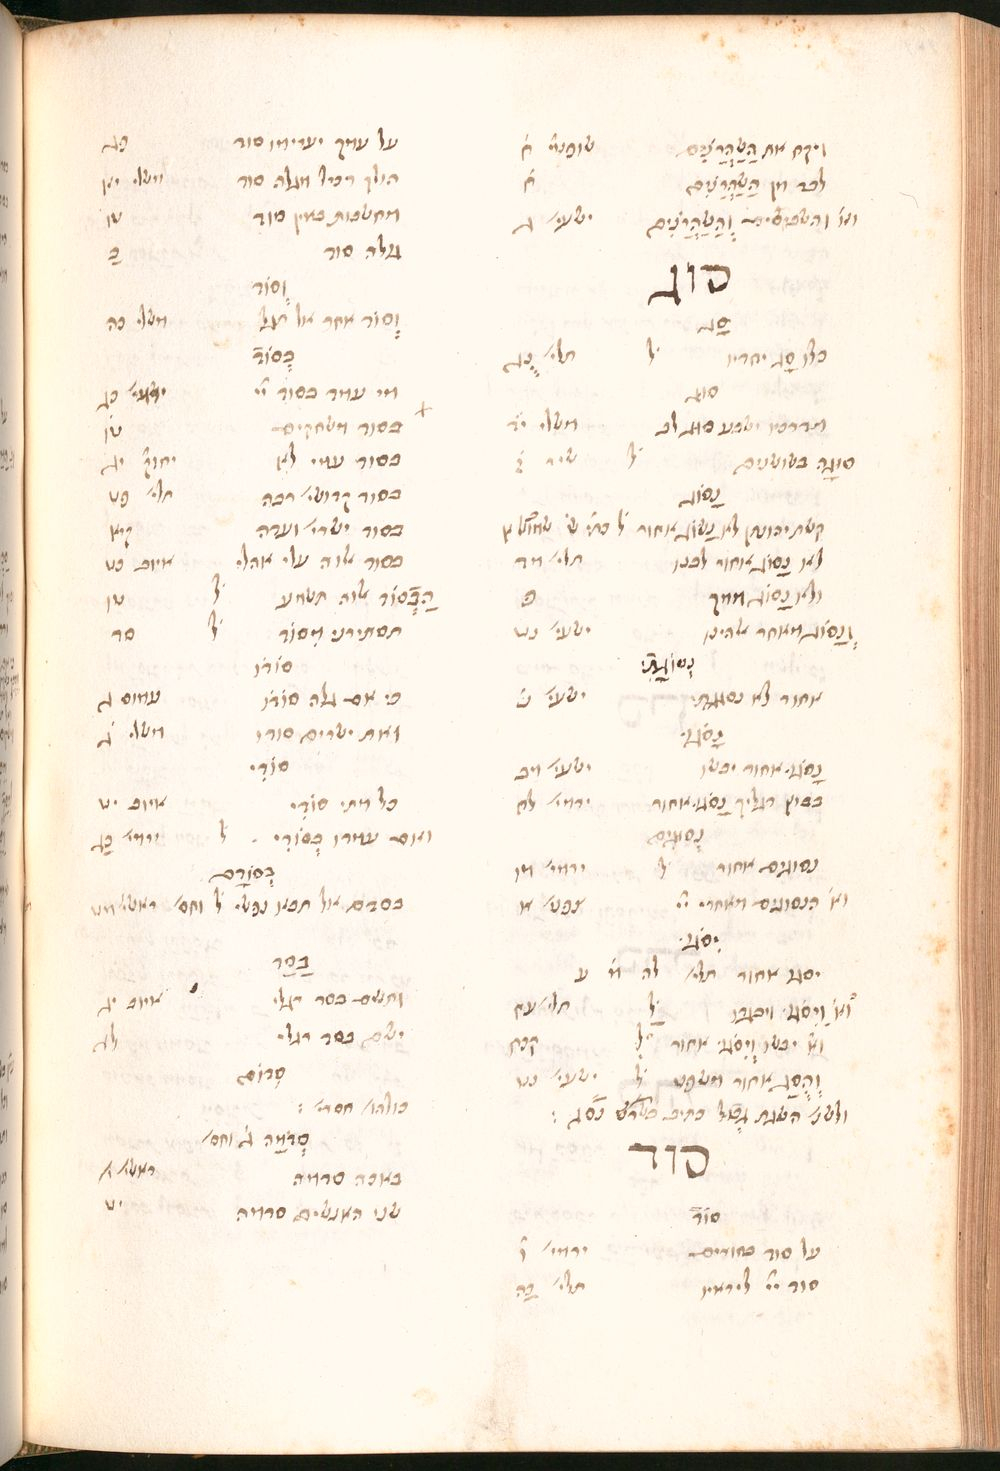 ויקח את הַשַׂהֲרֹנִים שופטי׳ ח
לבד מן הַשַׂהֲרֹנִים ח
וא׳ והשביסים וְהַשַׂהֲרֹנִים ישעי׳ ג
סוג
סָג
כלו סָג יחדיו ל׳ תלי׳ נג
סוג
מדרכיו ישבע סוג לב משלי יד
סוגָה בשושנים ל׳ שיר ז
נָסוֹג
קשת יהונתן לא נָשׂוֹג אחור ל׳ כתי׳ ש׳
לא נָסוֹג אחור לבנו תלי׳ מד
ולא נָסוֹג ממך פ
וְנָסוֹג מאחר אלהינו ישעי׳ נט
נְסוּגֹתִי
אחור לא נסוגתי ישעי׳ נ
נָסֹגוּ
נָסֹגוּ אחור יבשו ישעי׳ מב
בבוץ רגליך נָסֹגוּ אחור ירמי׳ לח
נְסוֹגִים
נסוגים אחור ל׳ ירמי׳ מו
וא׳ הנסוגים מאחרי יי׳ צפני׳ א
יִסֹּגוּ
יסגו אחור תלי׳ לה מ ע
וא׳ וַיִּסֹּגוּ ויבגדו ל׳ תלי׳ עח
וא׳ יבשו וְיִסֹּגוּ אחור ל׳ קכט
וְהֻסַּג אחור משפט ל׳ ישעי׳ נט
ולשני השגת גבול כתיב בשרש נסג :
סוד
סוֹד
על סוד בחורים ירמי׳ ו
סוד יי׳ ליראיו תלי׳ כה
על עמך יערימו סוד פג
הולך רכיל מגלה סוד משלי יא
מחשבות באין סוד טו
גולה סוד כ
וְסוֹד
וְסוֹד אחר אל תגל משלי כה
בְּסוֹד
מי עמד בסוד יי׳ ירמי׳ כג
בסוד משחקים טו
בסוד עמי לא יחזק׳ יג
בסוד קדושי׳ רבה תלי׳ פט
בסוד ישרי׳ ועדה קיא
בסוד אלוה עלי אהלי איוב כט
הַבְּסוֹד אלוה תשמע ל׳ טו
תסתירני מִסּוֹד ל׳ סד
סוֹדוֹ
כי אם גלה סוֹדוֹ עמוס ג
ואת ישרים סודו משלי ג
סוֹדִי
כל מתי סוֹדִי איוב יט
ואם עמדו בְּסוֹדִי ל׳ ירמי׳ כג
בְּסוֹדָם
בסדם אל תבא נפשי ל׳ וחס׳ ראשי׳ מט
בַּסַּד
ותשם בסד רגלי איוב יג
ישם בסד רגלי לג
סְדוֹם
כולהו׳ חסרי׳ :
סְדֹמָה ג׳ וחס׳
באכה סדמה ראשי׳ י
שני האנשים סדמה יט